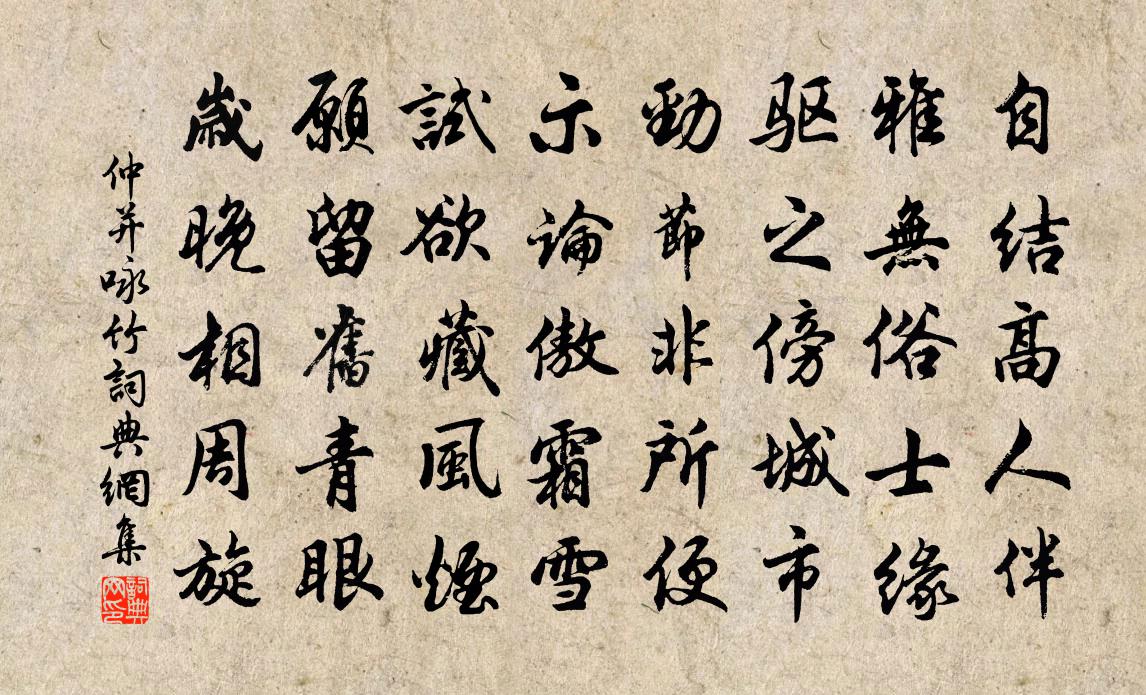 自结高人伴
雅無俗士緣
驱之傍城市
勁節非所便
示論傲霜雪
試欲藏風煙
願留舊青眼
歲晚相周旋
仲并咏竹詞典網集
詞典网印